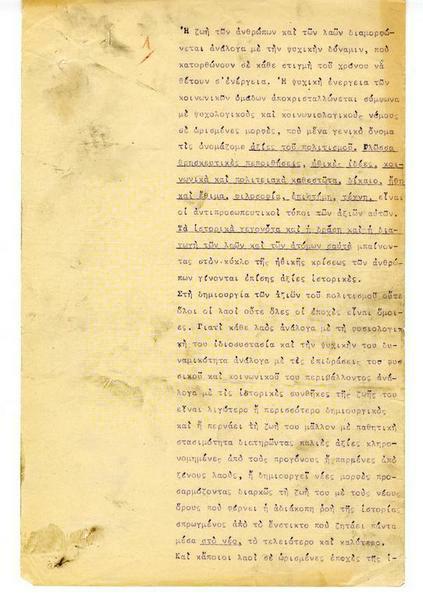 1
Ἡ ζωή τῶν ἀνθρώπων καί τῶν λαῶν διαμορφώ-
νεται ἀνάλογα μέ τήν ψυχικήν δύναμιν, πού
κατορθώνουν σέ κάθε στιγμή τοῦ χρόνου νά
θέτουν σ'ἐνέργεια. Ἡ ψυχική ἐνέργεια τῶν
κοινωνικῶν ὁμάδων ἀποκρισταλλώνεται σύμφωνα
μέ ψυχολογικούς καί κοινωνιολογικούς νόμους
σέ ὡρισμένες μορφές, πού μένα γενικό ὄνομα
τίς ὀνομάζομε ἀξίες τοῦ πολιτισμοῦ. Γλῶσσα
θρησκευτικές πεποιθήσεις, ἠθικές ἰδέες, κοι-
νωνικά καί πολιτειακά καθεστῶτα, δίκαιο, ἤθη
καί ἔθιμα, φιλοσοφία, ἐπιστήμη, τέχνη, εἶναι
οἱ ἀντιπροσωπευτικοί τύποι τῶν ἀξιῶν αὐτῶν.
Τά ἱστορικά γεγονότα καί ἡ δράση καί ἡ δια-
γωγή τῶν λαῶν καί τῶν ἀτόμων σαὐτά μπαίνον-
τας στόν κύκλο τῆς ἠθικῆς κρίσεως τῶν ἀνθρώ-
πων γίνονται ἐπίσης ἀξίες ἱστορικές.
Στή δημιουργία τῶν ἀξιῶν τοῦ πολιτισμοῦ οὔτε
ὅλοι οἱ λαοί οὔτε ὅλες οἱ ἐποχές εἶναι ὅμοι-
ες. Γιατί κάθε λαός ἀνάλογα μέ τή φυσιολογι-
κή του ἰδιοσυστασία καί τήν ψυχική του δυ-
ναμικότητα ἀνάλογα μέ τίς ἐπιδράσεις τοῦ φυ-
σικοῦ καί κοινωνικοῦ του περιβάλλοντος ἀνά-
λογα μέ τίς ἱστορικές συνθῆκες τῆς ζωῆς του
εἶναι λιγότερο ἤ περισσότερο δημιουργικός
καί ἤ περνάει τή ζωή του μᾶλλον μέ παθητική
στασιμότητα διατηρῶντας παλιές ἀξίες κληρο-
νομημένες ἀπό τούς προγόνους ἤ παρμένες ἀπό
ξένους λαούς, ἤ δημιουργεῖ νέες μορφές προ-
σαρμόζοντας διαρκῶς τή ζωή του μέ τούς νέους
ὅρους πού φέρνει ἡ ἀδιάκοπη ροή τῆς ἱστορίας
σπρωγμένος ἀπό τό ἔνστικτο πού ζητάει πάντα
μέσα στό νέο, τό τελειότερο καί καλύτερο.
Καί κάποιοι λαοί σέ ὡρισμένες ἐποχές τῆς ἱ-